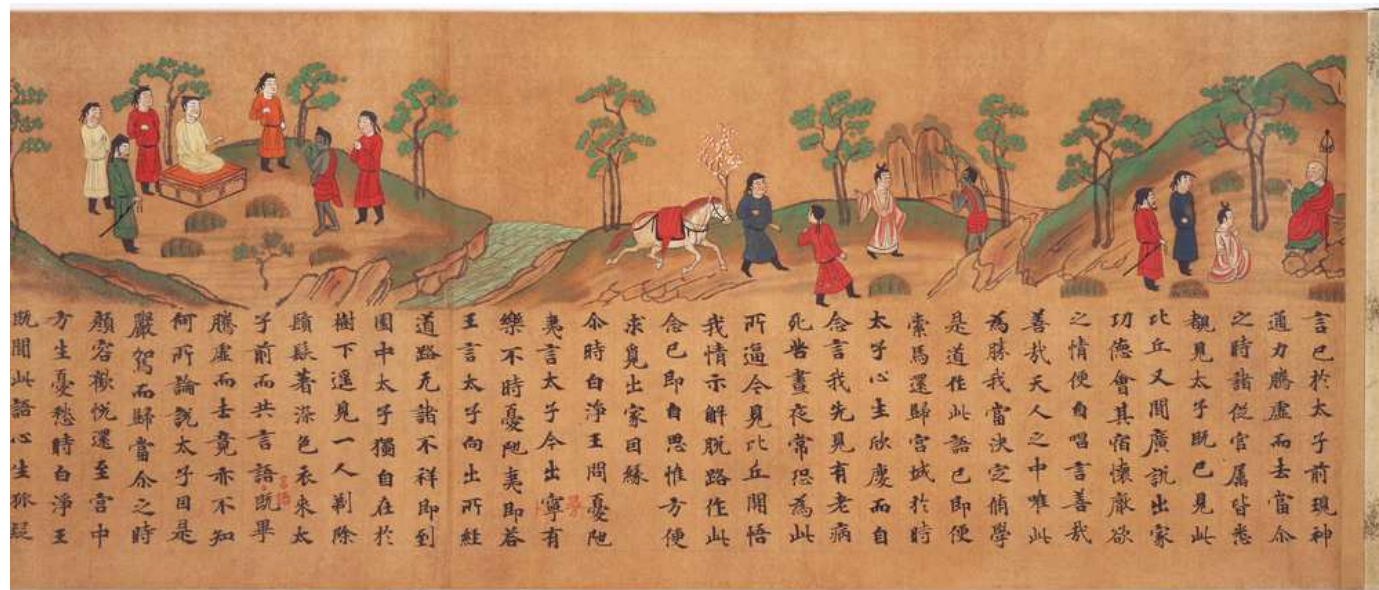 言已於太子前現神
通力騰虛而去當尒
之時諸從官屬皆悉
覩見太子既已見此
比丘又聞廣說出家
功德會其宿懷厭欲
之情便自唱言善哉
善哉天人之中唯此
為勝我當決定脩學
是道作此語已即便
索馬還歸宮城於時
太子心生欣慶而自
念言我先見有老病
死苦晝夜常恐為此
所逼今見比丘開悟
我情示解脫路作此
念已即自思惟方便
求覓出家因緣
尒時白淨王問憂陁
夷言太子今出寧有
樂不時憂陁夷即荅
王言太子向出所經
道路无諸不祥即到
園中太子獨自在於
樹下遥見一人剃除
鬚髮著染色衣來太
子前而共言語既畢
言語
騰虛而去竟亦不知
何所論說太子因是
嚴駕而歸當尒之時
顏容歡悅還至宮中
方生憂愁時白淨王
既聞此語心生狐疑